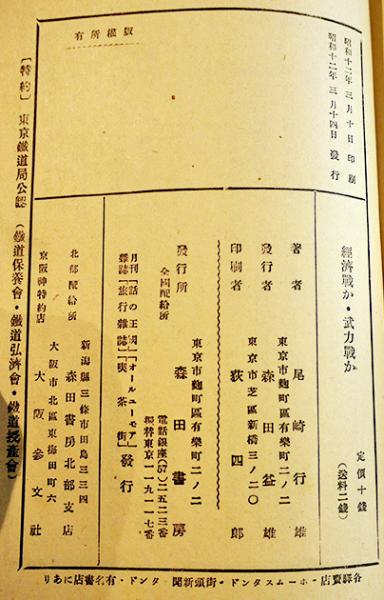 昭和十二年三月十日印刷
昭和十二年三月十四日發行
版權所有
經濟戰か・武力戰か
定價十錢
(送料二錢)
著者 尾崎行雄
東京市麴町區有樂町二ノ二
發行者 森田益雄
東京市芝區新橋三ノ二〇
印刷者 荻四郎
東京市麴町區有樂町二ノ二
發行所 森田書房
電話銀座(57)二五二三番
振替東京一一九一一七番
全國配給所
月刊「話の王國」「オールユーモア」
雜誌「旅行雜誌」「喫茶街」發行
新潟縣三條市田島三三四
北部配給所 森田書房北部支店
大阪市北區東梅田町六
京阪神特約店 大阪參文社
[特約] 東京鐵道局公認 (鐵道保養會・鐵道弘濟會・鐵道授產會)
各驛賣店・ホームスタンド・街頭新聞スタンド・有名書店にあり